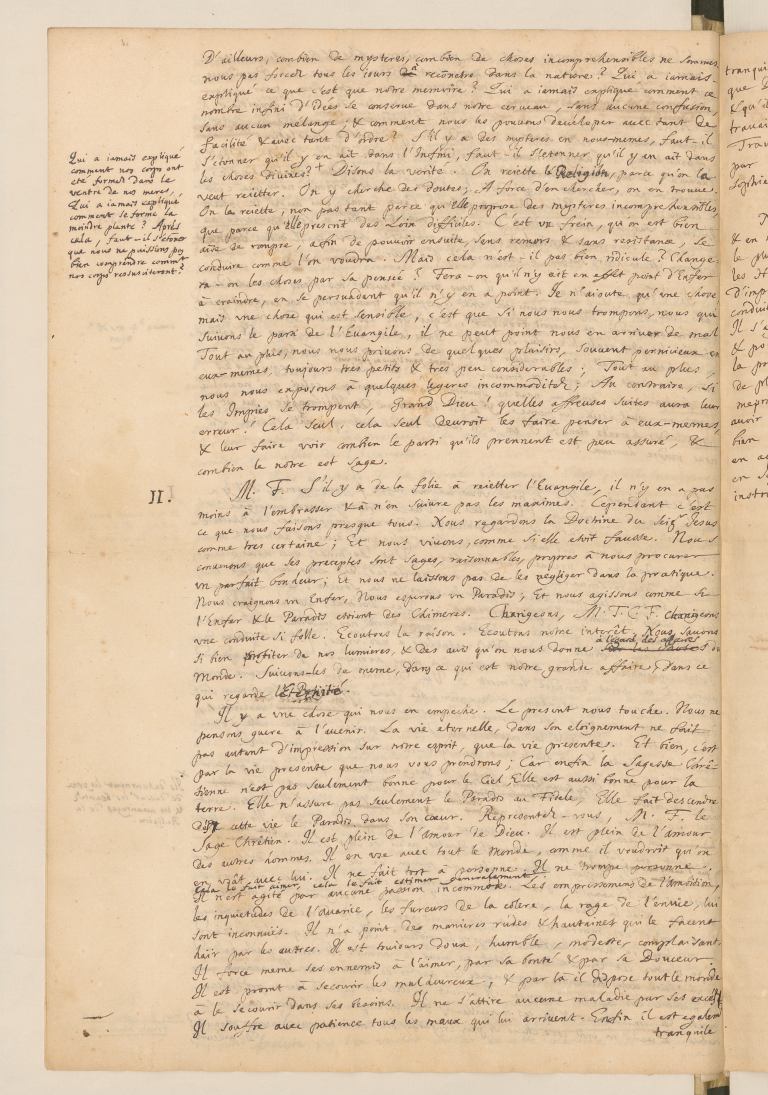 D'ailleurs, combien de mysteres, combien de choses incomprehensibles ne sommes
nous pas forcez tous les iours à recõnetre dans la nature? Qui a iamais
expliqué ce que c'est que notre memoire? Qui a iamais expliqué comment ce
nombre infini d'Idées se conserve dans notre cerveau, sans aucune confusion,
sans aucun mélange; & comment nous les pouvons déveloper avec tant de
facilité & avec tant d'ordre? S'il y a des mysteres en nous-memes, faut-il
s'étonner qu'il y en ait dans l'Infini, faut-il s'etonner qu'il y en ait dans
les choses divines? + Disons la verité. On reiette la Religion, parce qu'on la
veut reietter. On y cherche des doutes; A force d'en chercher, on en trouve.
On la reiette, non pas tant parce qu'elle propose des mysteres incomprehensibles,
que parce qu'elle prescrit des Loix difficiles. C'est un frein, qu'on est bien
aise de rompre, afin de pouvoir ensuite, sans remors & sans resistance, se
conduire comme l'on voudra. Mais cela n'est-il pas bien ridicule? Change-
ra-on les choses par sa pensée? Fera-on qu'il n'y ait en effét point d'Enfer
à craindre, en se persuadant qu'il n'y en a point. Ie n'aioute qu'une chose
mais une chose qui est sensible, c'est que si nous nous trompons, nous qui
suivons le parti de l'Evangile, il ne peut point nous en arriver de mal
Tout au plus, nous nous privons de quelques plaisirs, souvent pernicieux en
eux-memes, toujours tres petits & tres peu considerables; Tout au plus,
nous nous exposons à quelques legeres incommoditez; Au contraire, si
les Impies se trompent, Grand Dieu! quelles affreuses suites aura leur
erreur! Cela seul, cela seul devroit les faire penser à eux-memes,
& leur faire voir combien le parti qu'ils prennent est peu assuré, &
combien le notre est sage.
Qui a iamais expliqué
comment nos corps ont
eté formez dans le
ventre de nos meres,
Qui a iamais expliqué
comment se forme la
moindre plante? Aprés
cela, faut-il s'etoner
que nous ne puissions pas
bien comprendre comment
nos corps ressusciteront?
II. M. F. S'il y a de la folie à reietter l'Evangile, il n'y en a pas
moins à l'embrasser & à n'en suivre pas les maximes. Cependant c'est
ce que nous faisons presque tous. Nous regardons la Doctrine du Seigr Jesus
comme tres certaine; Et nous vivons, comme si elle etoit fausse. Nous
convenons que ses preceptes sont sages, raisonnables, propres à nous procurer
un parfait bonheur; Et nous ne laissons pas de les negliger dans la pratique.
Nous craignons un Enfer, Nous esperons un Paradis; Et nous agissons comme si
l'Enfer & le Paradis etoient des Chimeres. Changeons, M. T. C. F. changeons
une conduite si folle. Ecoutons la raison. Ecoutons notre interêt. Nous savons
à l'egard des affaires
si bien profiter de nos lumieres, & des avis qu'on nous donne sur les choses du
Monde. Suivons-les de meme, dans ce qui est notre grande affaire, dans ce
qui regarde l'Eternité.
Il y a une chose qui nous en empeche. Le present nous touche. Nous ne
pensons guere à l'avenir. La vie eternelle, dans son eloignement ne fait
pas autant d'impression sur notre esprit, que la vie presente. Et bien, c'est
par la vie presente que nous vous prendrons; Car enfin la Sagesse Chrê-
tienne n'est pas seulement bonne pour le Ciel, Elle est aussi bonne pour la
terre. Elle n'assure pas seulement le Paradis au Fidele, Elle fait descendre
dez cette vie le Paradis dans son cœur. Representez-vous, M. F. le
Sage Chrétien. Il est plein de l'amour de Dieu. Il est plein de l'amour
des autres hommes. Il en use avec tout le monde, comme il voudroit qu'on
en usât avec lui. Il ne fait tort à personne. Il ne trompe personne;
cela le fait aimer, cela le fait estimer generalement.
Il n'est agité par aucune passion incommode. Les empressemens de l'ambition,
les inquietudes de l'avarice, les fureurs de la colere, la rage de l'envie, lui
sont inconnuës. Il n'a point des manieres rudes & hautaines qui le facent
haïr par les autres. Il est tuiours doux, humble, modeste, complaisant.
Il force meme ses ennemis à l'aimer, par sa bonté & par sa Douceur.
Il est promt à secourir les malheureux, & par là il dispose tout le monde
à le secourir dans ses besoins. Il ne s'attire aucune maladie par ses excés,
Il souffre avec patience tous les maux qui lui arrivent. Enfin il est egalem
tranquile